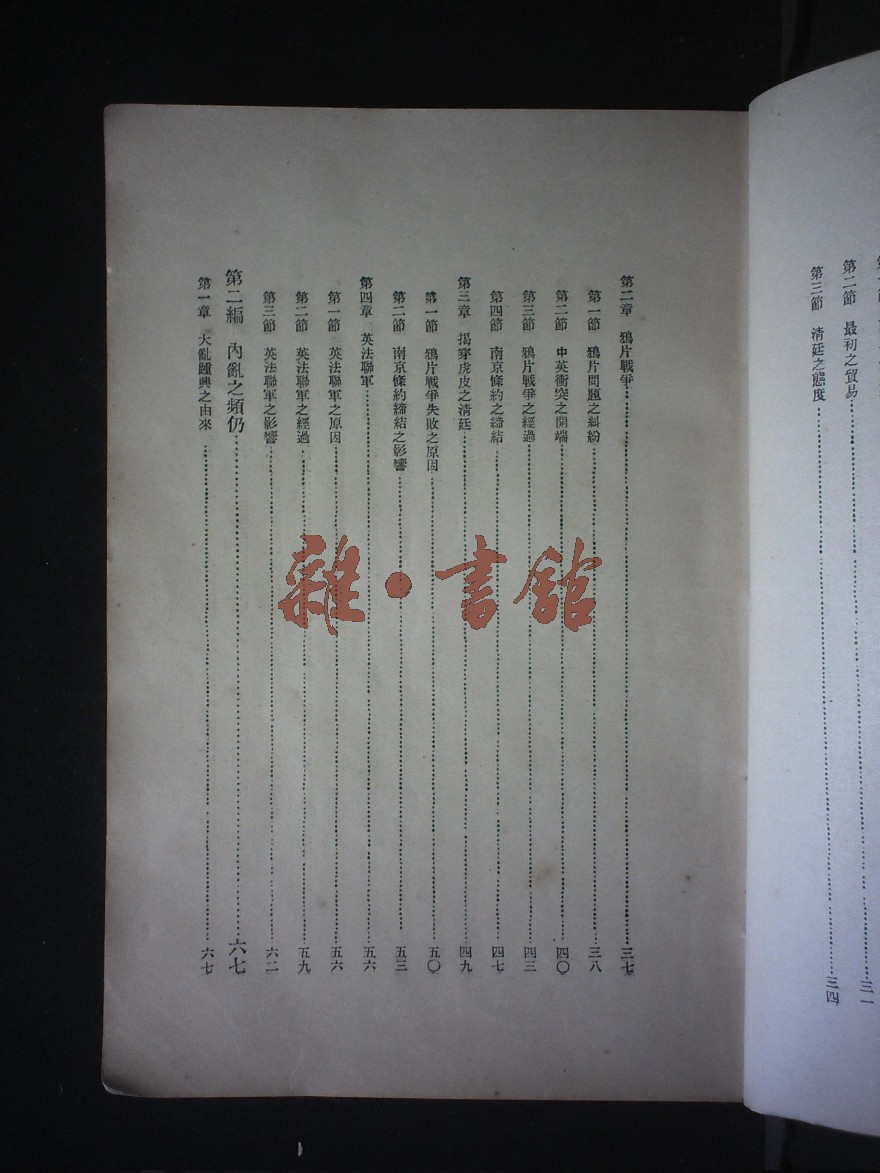 第二節　最初之貿易……三一
第三節　清廷之態度……三四
第二章　鴉片戰爭……三七
第一節　鴉片問題之糾紛……三八
第二節　中英衝突之開端……四〇
第三節　鴉片戰爭之經過……四三
第四節　南京條約之締結……四七
第三章　揭穿虎皮之清廷……四九
第一節　鴉片戰爭失敗之原因……五〇
第二節　南京條約締結之影響……五三
第四章　英法聯軍……五六
第一節　英法聯軍之原因……五六
第二節　英法聯軍之經過……五九
第三節　英法聯軍之影響……六二
第二編　內亂之頻仍……六七
第一章　大亂踵興之由來……六七
雜·書館